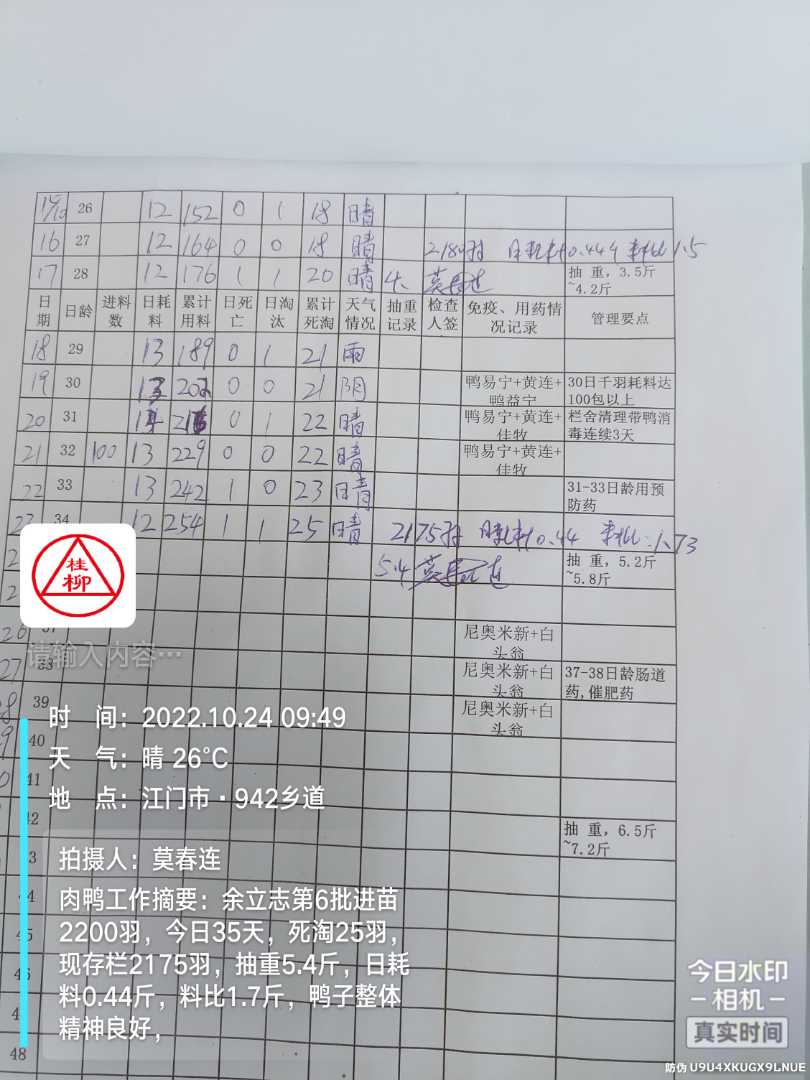 15/10 26 12 152 0 1 18 晴
16 27 12 164 0 0 18 晴 2180羽 日耗料0.44斤 料比1.5
17 28 12 176 1 1 20 晴 4 莫春连 抽 重，3.5斤~4.2斤
日期 日龄 进料数 日耗料 累计用料 日死亡 日淘汰 累计死淘 天气情况 抽重记录 检查人签 免疫、用药情况记录 管理要点
18 29 13 189 0 1 21 雨
19 30 13 202 0 0 21 阴 鸭易宁+黄连+鸭益宁 30日千羽耗料达100包以上
20 31 14 216 0 1 22 晴 鸭易宁+黄连+佳牧 栏舍清理带鸭消毒连续3天
21 32 100 13 229 0 0 22 晴 鸭易宁+黄连+佳牧
22 33 13 242 1 0 23 晴 31-33日龄用预防药
23 34 12 254 1 1 25 晴 2175羽 日耗料0.44 料比:1.73
5.4 莫春连 抽 重，5.2斤~5.8斤
桂柳
26 37 尼奥米新+白头翁
请输入内容···
27 38 尼奥米新+白头翁 37-38日龄肠道药,催肥药
39 尼奥米新+白头翁
时 间：2022.10.24 09:49
40
天 气：晴 26°C
41
地 点：江门市·942乡道
42 抽 重，6.5斤~7.2斤
拍摄人：莫春连
肉鸭工作摘要：余立志第6批进苗
2200羽，今日35天，死淘25羽，
现存栏2175羽，抽重5.4斤，日耗
料0.44斤，料比1.7斤，鸭子整体
精神良好，
48
今日水印
-相机-
真实时间
防伪 U9U4XKUGX9LNUE